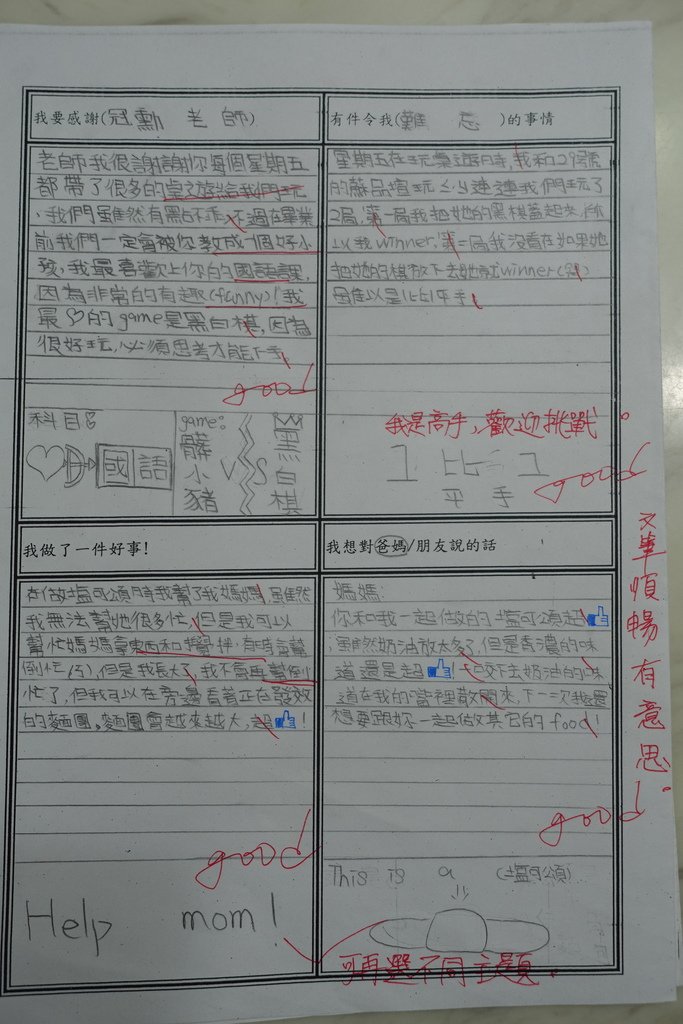 我要感謝(冠勳 老師)
老師我很謝謝你每個星期五
都帶了很多的桌之遊給我們玩
、我們雖然有點不乖,不過在畢業
前我們一定會被你教成一個好小
孩,我最喜歡上你的國語課,
因為非常的有趣(fanny)!我
最♡的game是黑白棋,因為
很好玩,必須思考才能下手,
good
科目:
國語
game:
髒小豬
VS
黑白棋
有件令我(難忘)的事情
星期五在玩桌遊時,我和29號
的蘇品壇玩
2局,第一局我把她的黑棋蓋起來,所
以我winner,第二局我沒看在如果她
把她的棋放下去她就winner(贏)
雖以是1比1平手。
我是高手,歡迎挑戰。
1 比 1
平 手
good
我做了一件好事!
在做塩可頌時我幫了我媽媽,雖然
我無法幫她很多忙,但是我可以
幫忙媽媽拿東西和攪拌,有時氣幫
倒忙(5),但是我長大了,我不會再幫倒
忙了,但我可以在旁邊看著正在發效
的麵團。麵團會越來越大,超👍!
good
Help mom!
我想對爸媽/朋友說的話
媽媽:
你和我一起做的塩可頌超👍
,雖然奶油放太多了,但是香濃的味
道還是超👍,一口咬下去奶油的味
道在我的嘴裡散開來,下一次我還
想要跟妳一起做其它的food!
good
This is a (塩可頌)
可再選不同主題。
文筆順暢有意思。